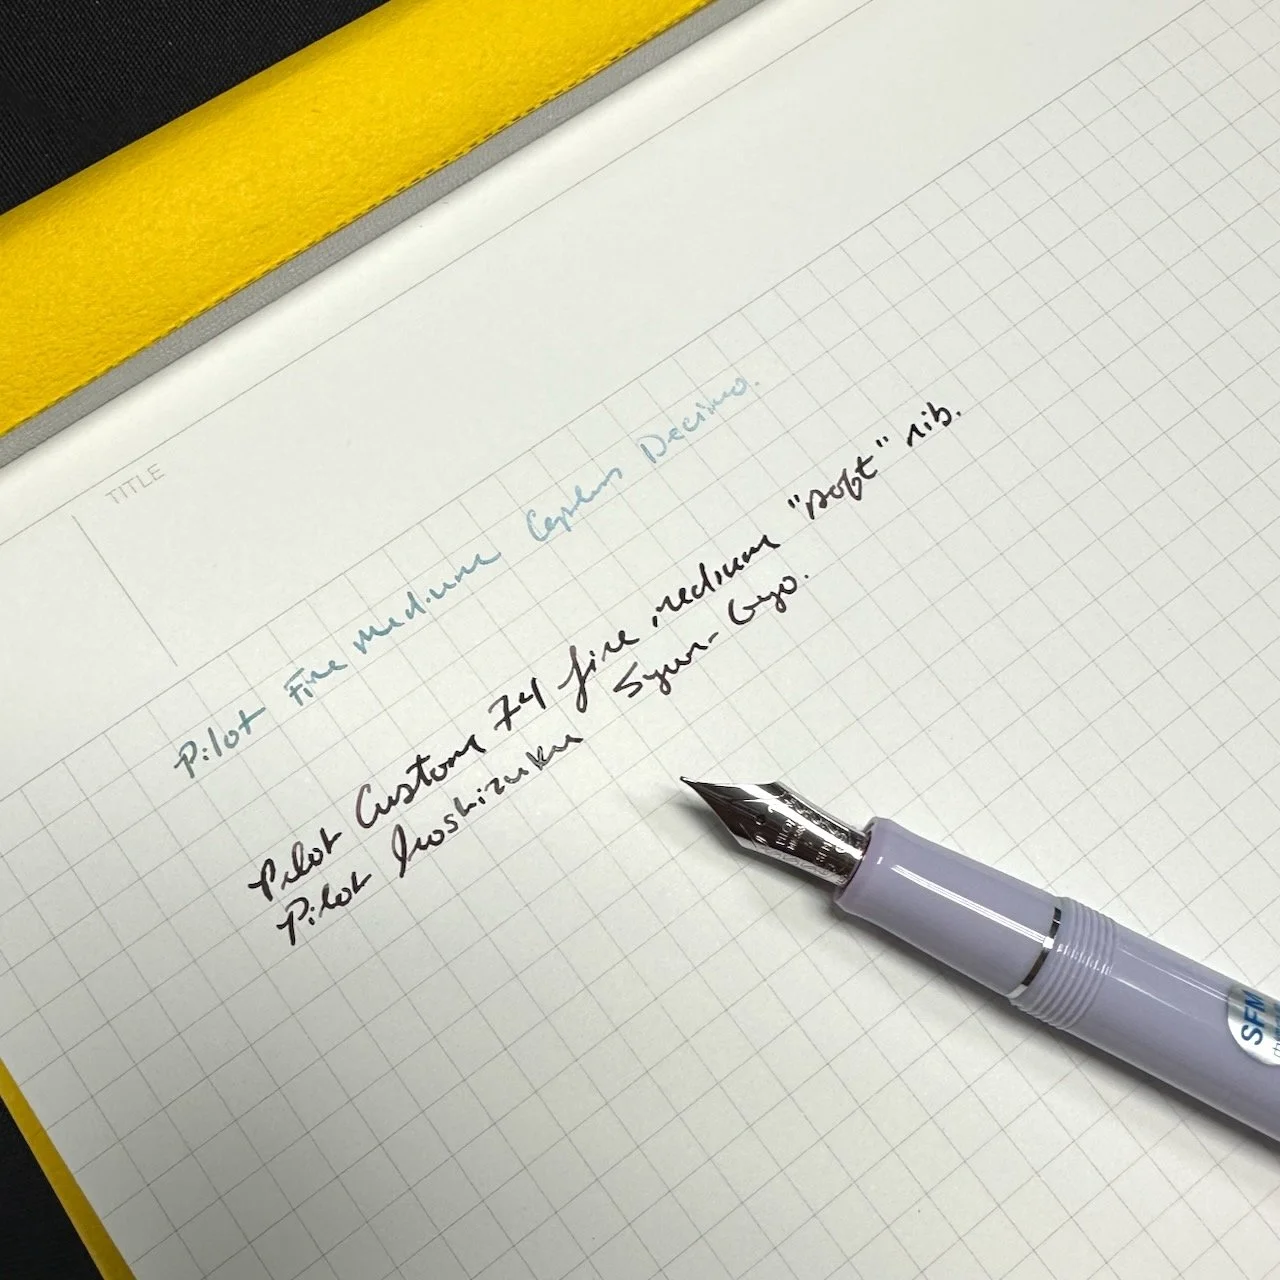 TITLE
Pilot Fine Medium Capless Decimo.
Pilot Custom 74 fine medium "soft" nib.
Pilot Iroshizuku Syun-Gyo.
PILOT
SFM